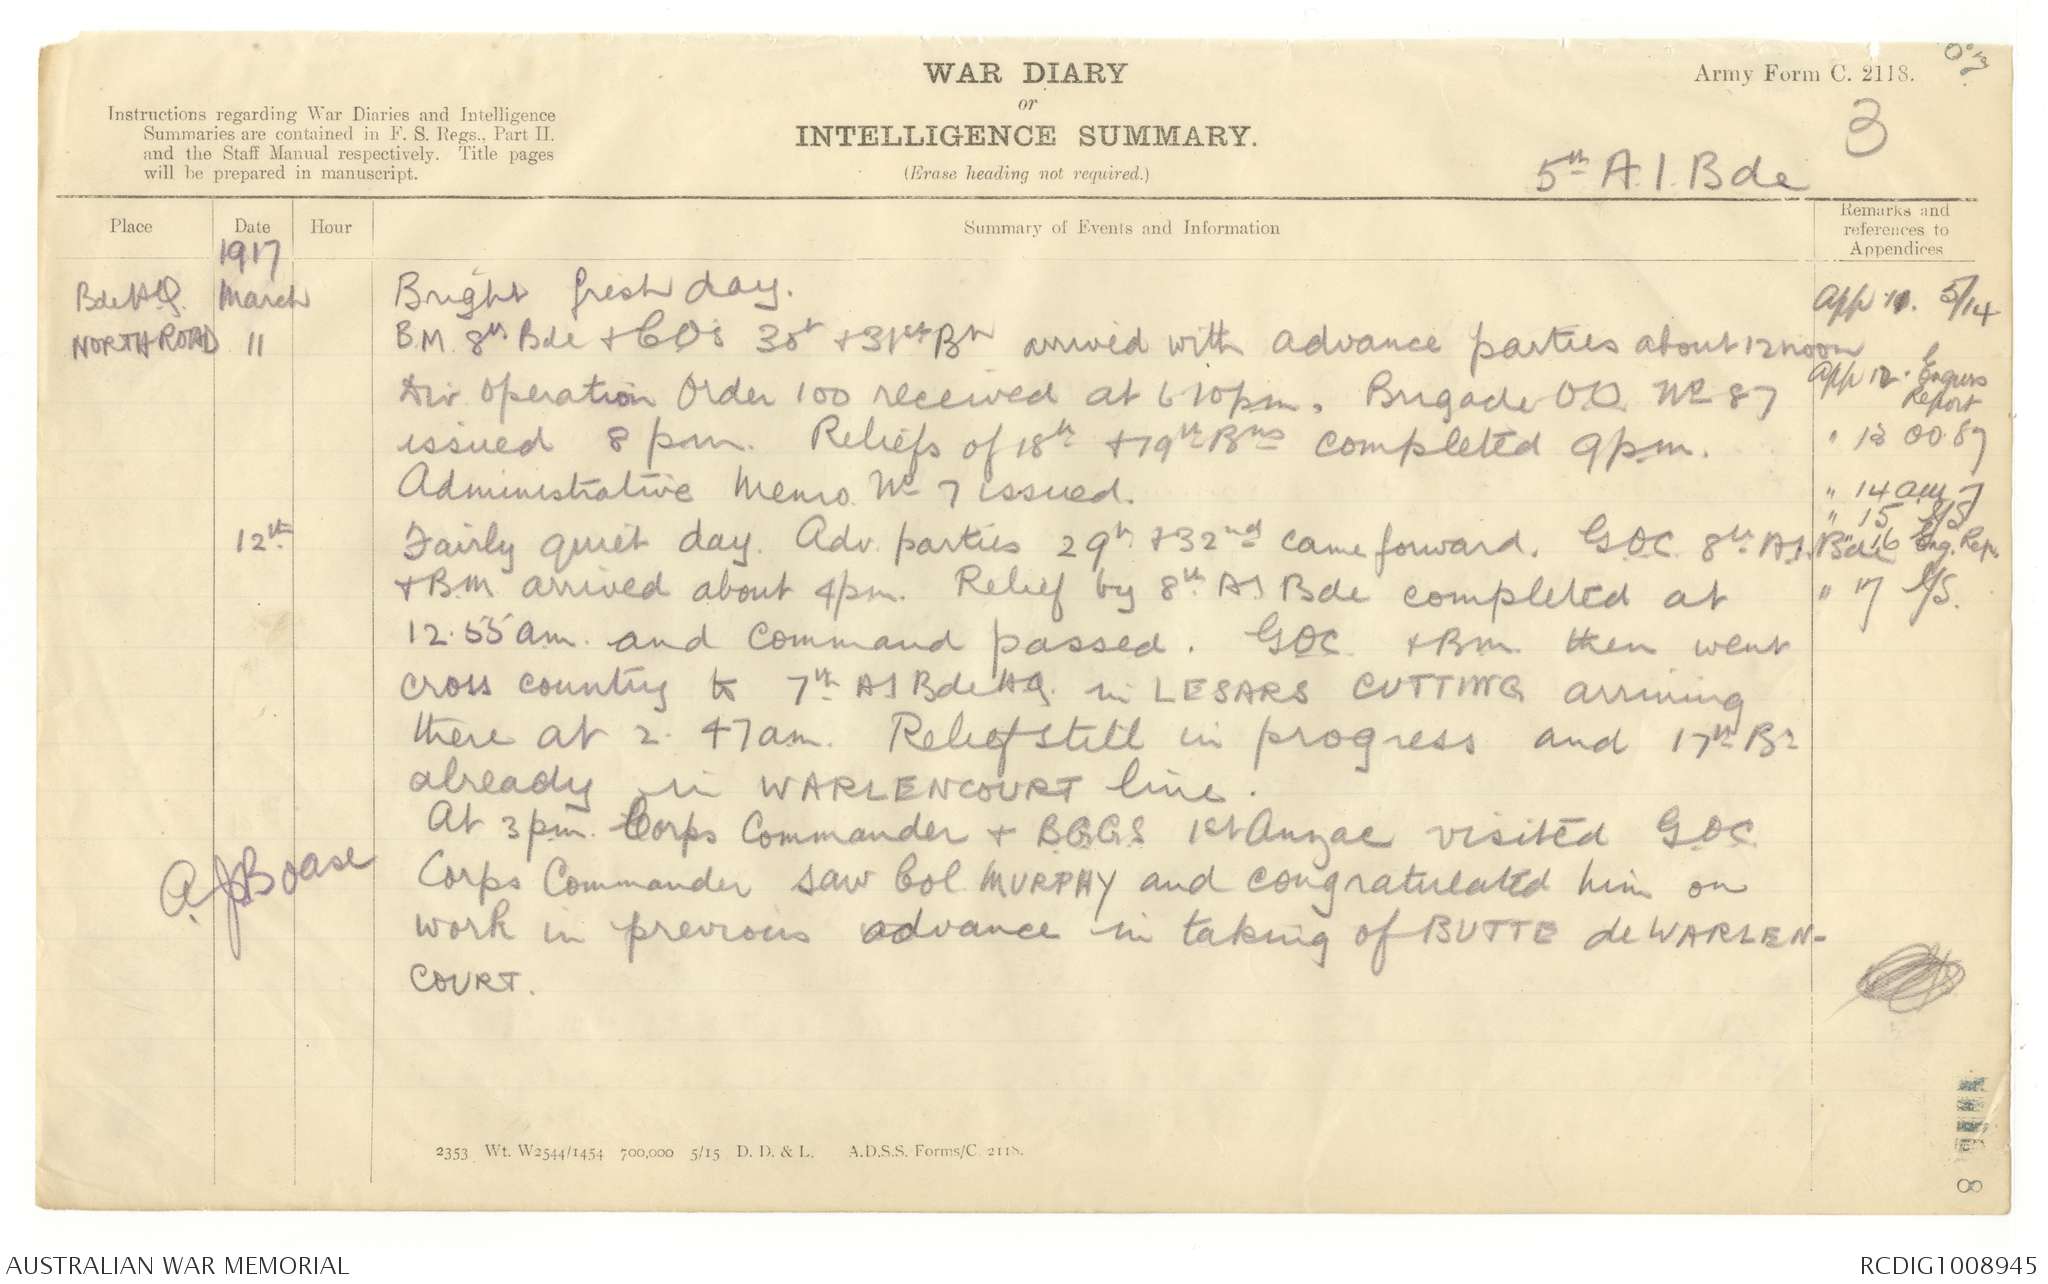 WAR DIARY
or
INTELLIGENCE SUMMARY.
(Erase heading not required.)
Army Form C. 2118.
3
Instructions regarding War Diaries and Intelligence
Summaries are contained in F. S. Regs., Part II.
and the Staff Manual respectively. Title pages
will be prepared in manuscript.
5th A.I. Bde
Place
Date
Hour
Summary of Events and Information
Remarks and
references to
Appendices
1917
Bde HQ. March
NORTH ROAD 11
Bright fresh day.
App 11. 5/14
B.M. 8th Bde + CO's 30th + 31st Bn arrived with advance parties about 12 noon
Div Operation Order 100 received at 6 10pm. Brigade O.O. No 87
App 12. Engrs
Report
issued 8 pm. Reliefs of 18th + 19th Bns completed 9pm.
" 13 OO 87
Administrative Memo. No 7 issued.
" 14 AM 7
" 15 I/S
12th Fairly quiet day. Adv. parties 29th + 32nd came forward. G.O.C. 8th A.I. Bde
" 16 Eng. Rep.
+ B.M. arrived about 4pm. Relief by 8th AI Bde completed at
" 17 I/S.
12.55am. and command passed. GOC + BM then went
cross country to 7th AI Bde HQ. in LE SARS CUTTING arriving
there at 2.47am. Relief still in progress and 17th Bn
already in WARLENCOURT line.
At 3pm. Corps Commander + BGGS 1st Anzac visited GOC
Corps Commander saw Col. MURPHY and congratulated him on
work in previous advance in taking of BUTTE de WARLEN-
COURT.
A.J. Boase
2353 Wt. W2544/1454 700,000 5/15 D. D. & L. A.D.S.S. Forms/C. 2118.
8
AUSTRALIAN WAR MEMORIAL
RCDIG1008945